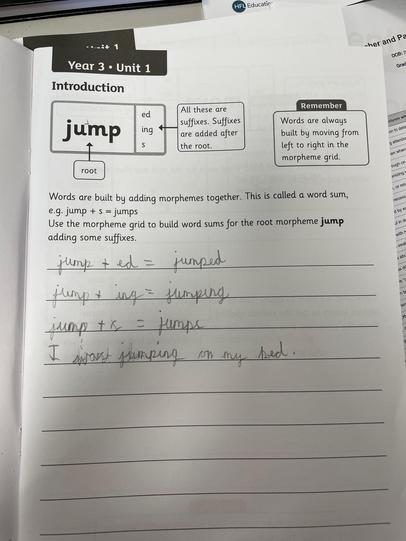 HFL Educatio
her and Pa
DOB:
Grad
Unit 1
Year 3 • Unit 1
Introduction
jump
ed
ing
s
root
All these are
suffixes. Suffixes
are added after
the root.
Remember
Words are always
built by moving from
left to right in the
morpheme grid.
Words are built by adding morphemes together. This is called a word sum,
e.g. jump + s = jumps
Use the morpheme grid to build word sums for the root morpheme jump
adding some suffixes.
jump + ed = jumped
jump + ing = jumping
jump + s = jumps
I jumping on my bed.